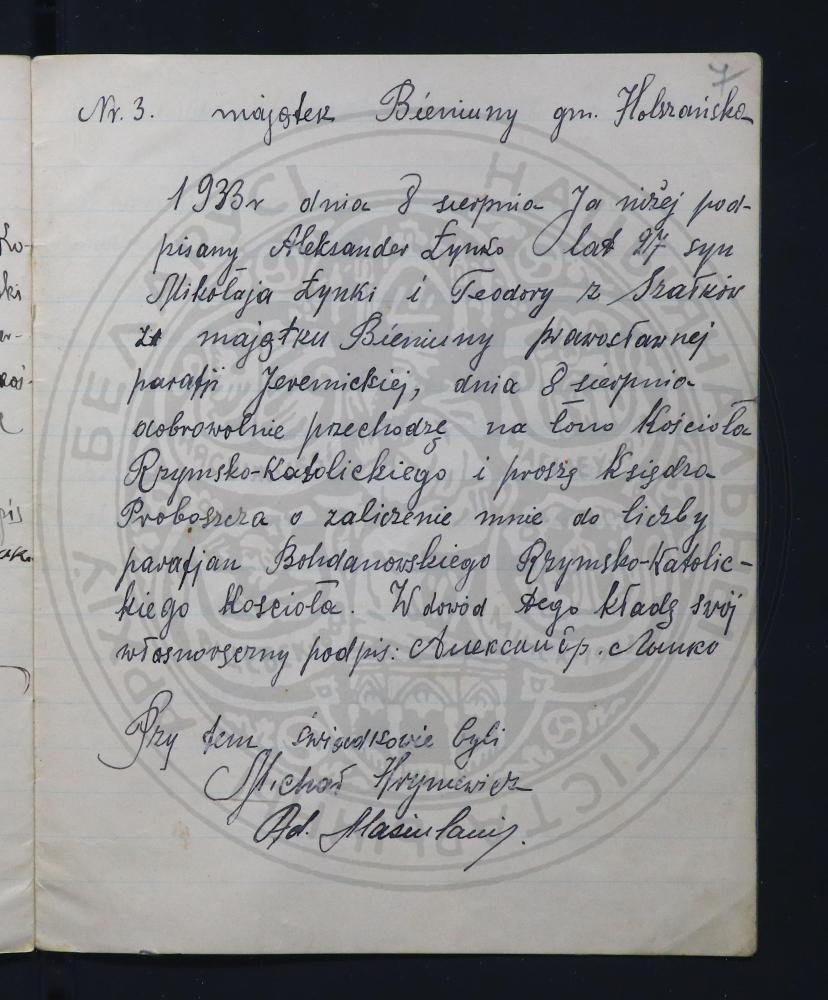 7
Nr. 3. majątek Bieniuny gm. Holszańska
1933 r dnia 8 sierpnia Ja niżej pod-
pisany Aleksander Łynko lat 27 syn
Mikołaja Łynki i Teodory z Szałków
z majątku Bieniuny prawosławnej
parafji Jeremickiej, dnia 8 sierpnia
dobrowolnie przechodzę na łono Kościoła
Rzymsko-Katolickiego i proszę Księdza
Proboszcza o zaliczenie mnie do liczby
parafjan Bohdanowskiego Rzymsko-Katolic-
kiego Kościoła. W dowód tego kładę swój
własnoręczny podpis: Александр.
Przy tem świadkowie byli
Michał Hryniewicz
Ad.